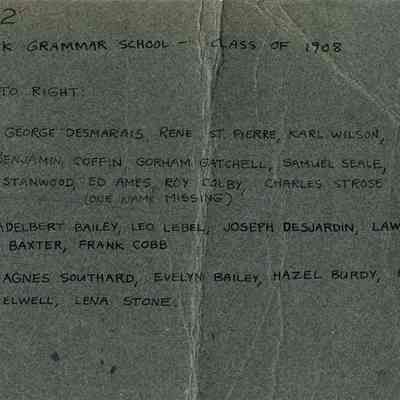 2
K GRAMMAR SCHOOL - CLASS OF 1908
TO RIGHT:
GEORGE DESMARAIS, RENE ST. PIERRE, KARL WILSON,
BENJAMIN COFFIN, GORHAM GATCHELL, SAMUEL SEALE,
STANWOOD, ED AMES, ROY COLBY, CHARLES STROSE
(ONE NAME MISSING)
ADELBERT BAILEY, LEO LEBEL, JOSEPH DESJARDIN, LAW
BAXTER, FRANK COBB
AGNES SOUTHARD, EVELYN BAILEY, HAZEL BURDY,
ELWELL, LENA STONE.